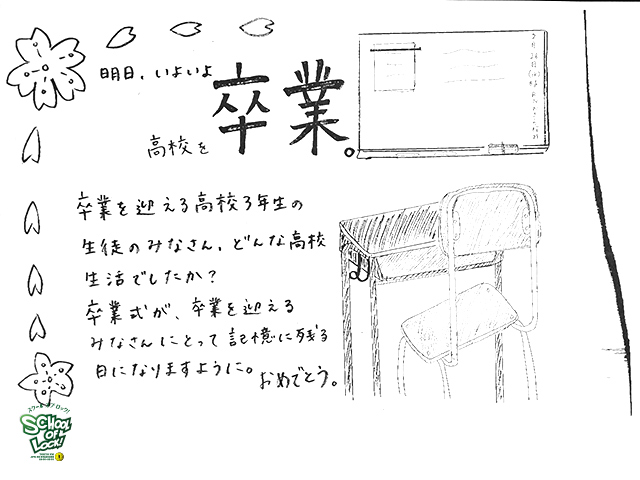 明日、いよいよ
高校を
卒業。
卒業を迎える高校3年生の
生徒のみなさん、どんな高校
生活でしたか?
卒業式が、卒業を迎える
みなさんにとって記憶に残る
日になりますように。
おめでとう。
スクール オブ ロック!
SCHOOL
OF
LOCK!